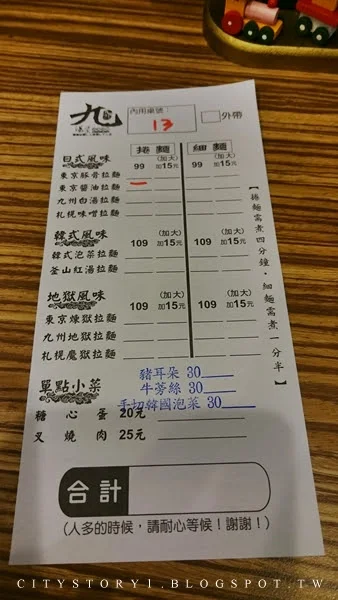 九
內用桌號:
13
外帶
捲麵 細麵
日式風味 99 (加大) 加15元 99 (加大) 加15元
東京豚骨拉麵
東京醬油拉麵 一
九州白湯拉麵
札幌味噌拉麵
韓式風味 109 (加大) 加15元 109 (加大) 加15元
韓式泡菜拉麵
釜山紅湯拉麵
地獄風味 109 (加大) 加15元 109 (加大) 加15元
東京煉獄拉麵
九州地獄拉麵
札幌魔獄拉麵
【捲麵需煮四分鐘・細麵需煮一分半】
單點小菜
豬耳朵 30
牛蒡絲 30
手切韓國泡菜 30
糖心蛋 20元
叉燒肉 25元
合計
(人多的時候，請耐心等候！謝謝！)
CITYSTORY1.BLOGSPOT.TW